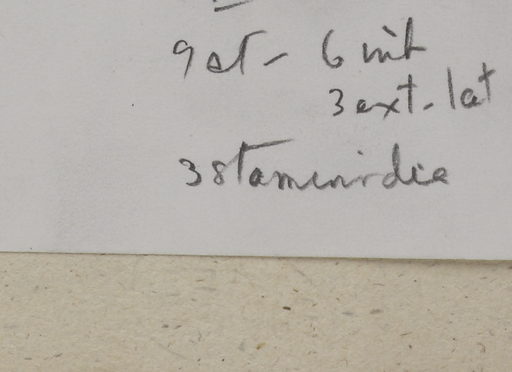 9 st - 6 int
3 ext-lat
3 staminodia